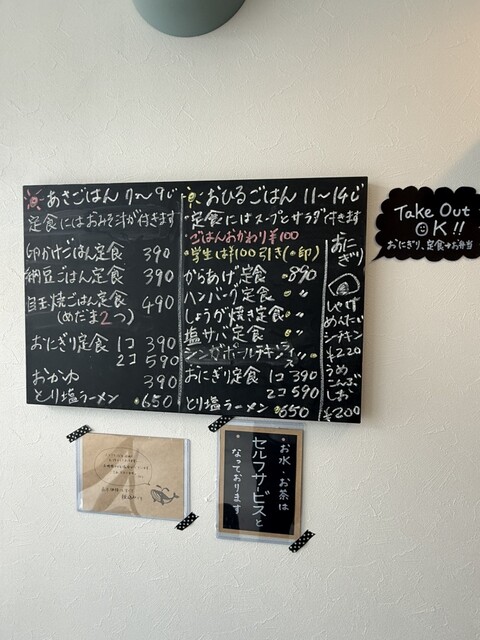 あさごはん 7〜9じ
定食にはおみそ汁が付きます
卵かけごはん定食 390
納豆ごはん定食 390
目玉焼ごはん定食 490
(めだま2つ)
おにぎり定食 1コ 390
2コ 590
おかゆ 390
とり塩ラーメン 650
おひるごはん 11〜14じ
定食にはスープとサラダ付きます
ごはんおかわり¥100
学生は¥100引き(・印)
からあげ定食 890
ハンバーグ定食 〃
しょうが焼き定食 〃
塩サバ定食 〃
シンガポールチキンライス 〃
おにぎり定食 1コ 390
2コ 590
とり塩ラーメン 650
おにぎり
しゃけ
めんたい
シーチキン
¥220
うめ
こんぶ
しお
¥200
Take Out
OK!!
おにぎり、定食→お弁当
お水・お茶は
セルフサービスと
なっております